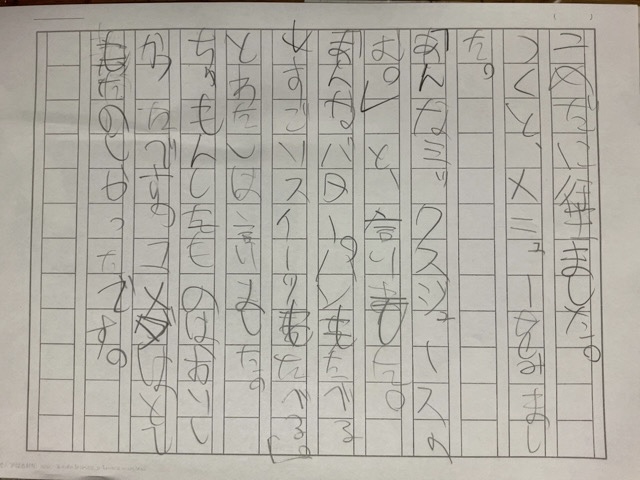 こめだに行きました。
つくと、メニューをみまし
た。
「あんなミックスジュースの
む。」と、言いました。
「あんなバターパンもたべる
すごいスイーツもたべる。」
とわたしは言いました。
ちゅもんしたものはおいし
かったですのコメダはとて
もたのしかったです。